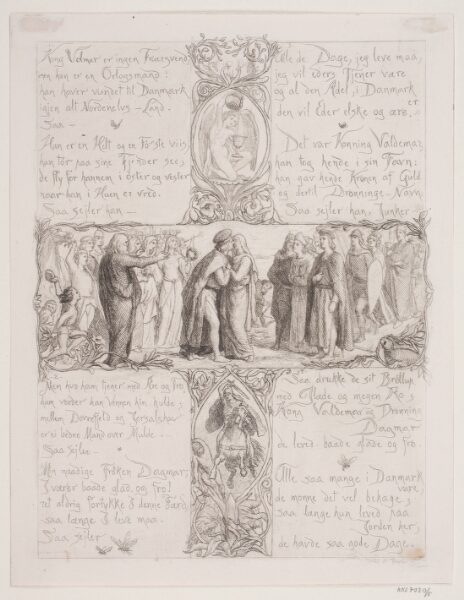 Kong Volmar er ingen
men han er en Orlogsmand:
han haver vundet til Danmark
igjen alt Nordenelvs-Land.
Saa -
Han er en Helt og en Første viis,
han tør paa sine Fjender see;
de fly for hannem i öster og vester
naar han i Huen er vred.
Saa sejler han -
Men hvo ham tjener med Ære og Tro
ham vorder han Vennen hin hulde;
mellem Dovrefjeld og
er ei bedre Mand over Mulde.-
Saa sejler -
Min naadige Fröken Dagmar,
I værer baade glad og fro!
ret aldrig fortykke I denne Færd
saa længe I leve maa.
Saa sejler
Alle de Dage, jeg leve maa,
jeg vil eders Tjener være
og al den Adel, i Danmark er
den vil Eder elske og ære.
Det var Konning Valdemar,
han tog hende i sin Favn;
han gav hende Kronen af Guld
og dertil Dronninge-Navn.
Saa sejler han,
Saa drukke de sit Bröllup
med Glæde og megen Ro,
Kong Valdemar og Dronning
Dagmar
de leved baade glade og fro.
Alle saa mange i Danmark
vare
de monne det vel behage,
saa længe hun leved paa
Jorden her,
de havde saa gode Dage.